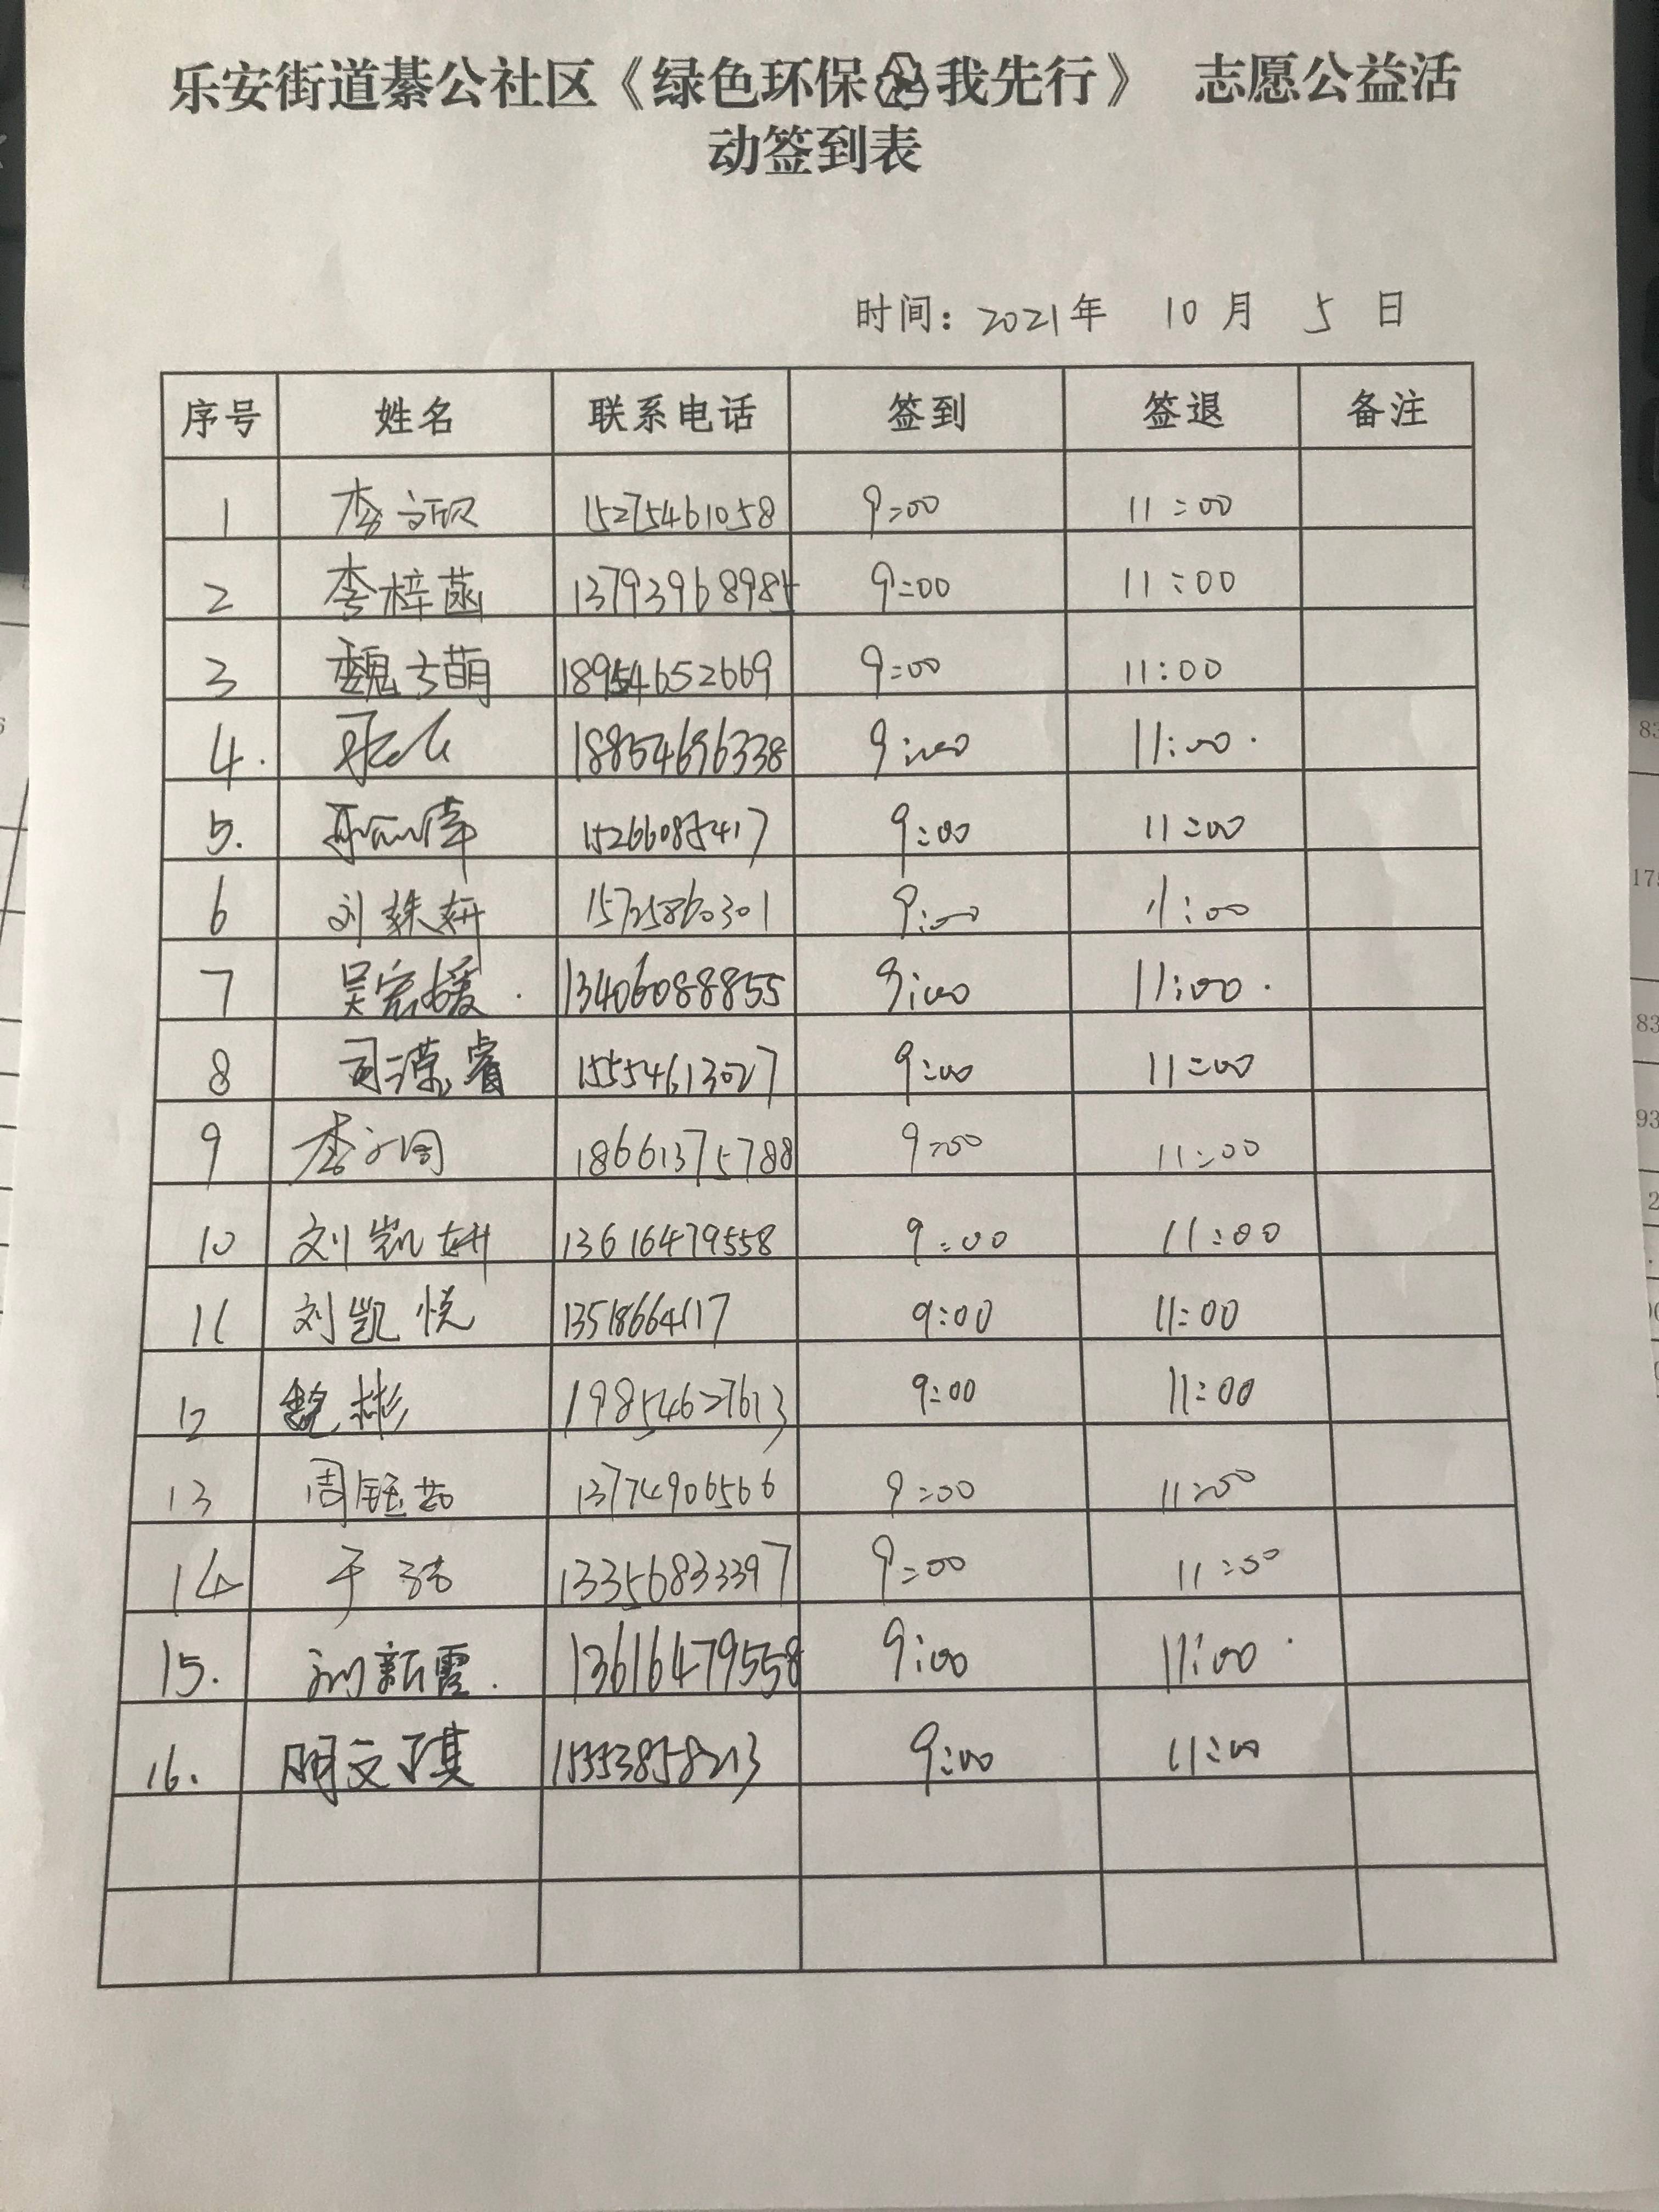 乐安街道綦公社区《绿色环保♻我先行》 志愿公益活
动签到表
时间：2021年 10月 5日
序号 姓名 联系电话 签到 签退 备注
1 李文欣 15275461058 9:00 11:00
2 李梓菡 1379396898 9:00 11:00
3 魏方萌 18954652669 9:00 11:00
4. 18854696338 9:00 11:00.
5. 15266085417 9:00 11:00
6 刘轶妍 15725860301 9:00 11:00
7 吴宏媛. 13406088855 9:00 11:00.
8 司溁睿 15554613027 9:00 11:00
9 李 18661375788 9:00 11:00
10 刘凯妍 13616479558 9:00 11:00
11 刘凯悦 13518664117 9:00 11:00
12 魏彬 19854627613 9:00 11:00
13 周钰茹 13774906566 9:00 11:00
14 于 13356833397 9:00 11:00
15. 刘新霞. 13616479558 9:00 11:00.
16. 明文琪 15553858213 9:00 11:00